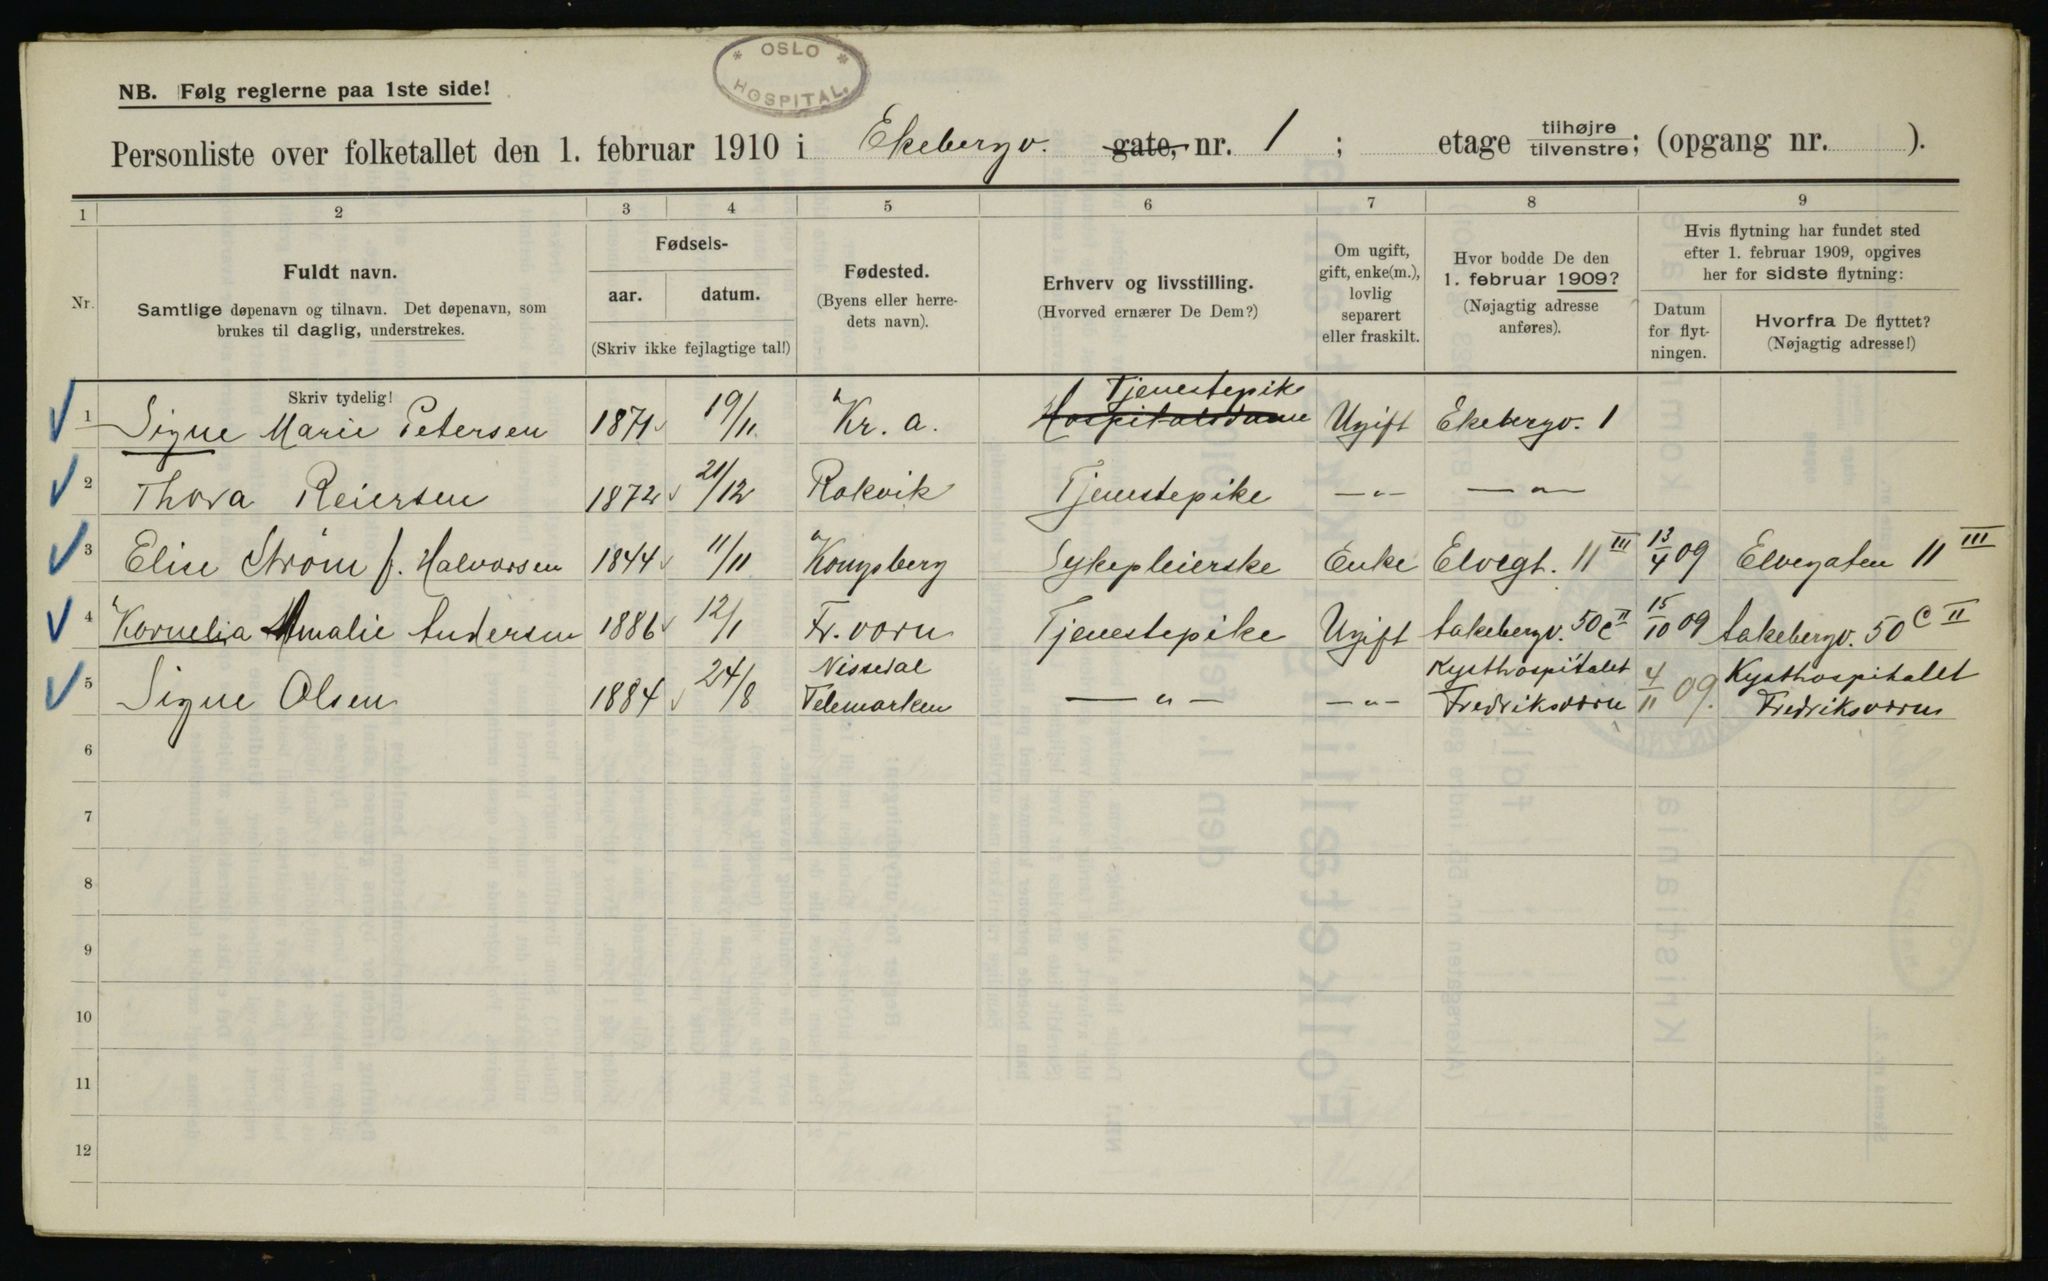 OSLO HOSPITAL.
NB. Følg reglerne paa 1ste side!
Personliste over folketallet den 1. februar 1910 i Ekebergv. gate, nr. 1 ; etage tilhøjre tilvenstre; (opgang nr. ).
1 2 3 4 5 6 7 8 9
Nr.
Fuldt navn.
Samtlige døpenavn og tilnavn. Det døpenavn, som
brukes til daglig, understrekes.
Fødsels-
aar. datum.
(Skriv ikke fejlagtige tal!)
Fødested.
(Byens eller herre-
dets navn).
Erhverv og livsstilling.
(Hvorved ernærer De Dem?)
Om ugift,
gift, enke(m.),
lovlig
separert
eller fraskilt.
Hvor bodde De den
1. februar 1909?
(Nøjagtig adresse
anføres).
Hvis flytning har fundet sted
efter 1. februar 1909, opgives
her for sidste flytning:
Datum
for flyt-
ningen.
Hvorfra De flyttet?
(Nøjagtig adresse!)
Skriv tydelig!
Tjenestepike
1 Signe Marie Petersen 1871 19/11 Kr. a. Hospitalsdame Ugift Ekebergv. 1
2 Thora Reiersen 1872 21/12 Rakvik Tjenestepike —„— —„—
3 Elise Strøm f. Halvorsen 1844 11/11 Kongsberg Sykepleierske Enke Elvegt. 11 III 13/4 09 Elvegaten 11 III
4 Kornelia Amalie Andersen 1886 12/1 Fr. værn Tjenestepike Ugift Aakebergv. 50 c II 15/10 09 Aakebergv. 50 C II
5 Signe Olsen 1884 24/8 Nissedal Telemarken —„— —„— Kysthospitalet Fredriksværn 4/11 09. Kysthospitalet Fredriksværn
6
7
8
9
10
11
12